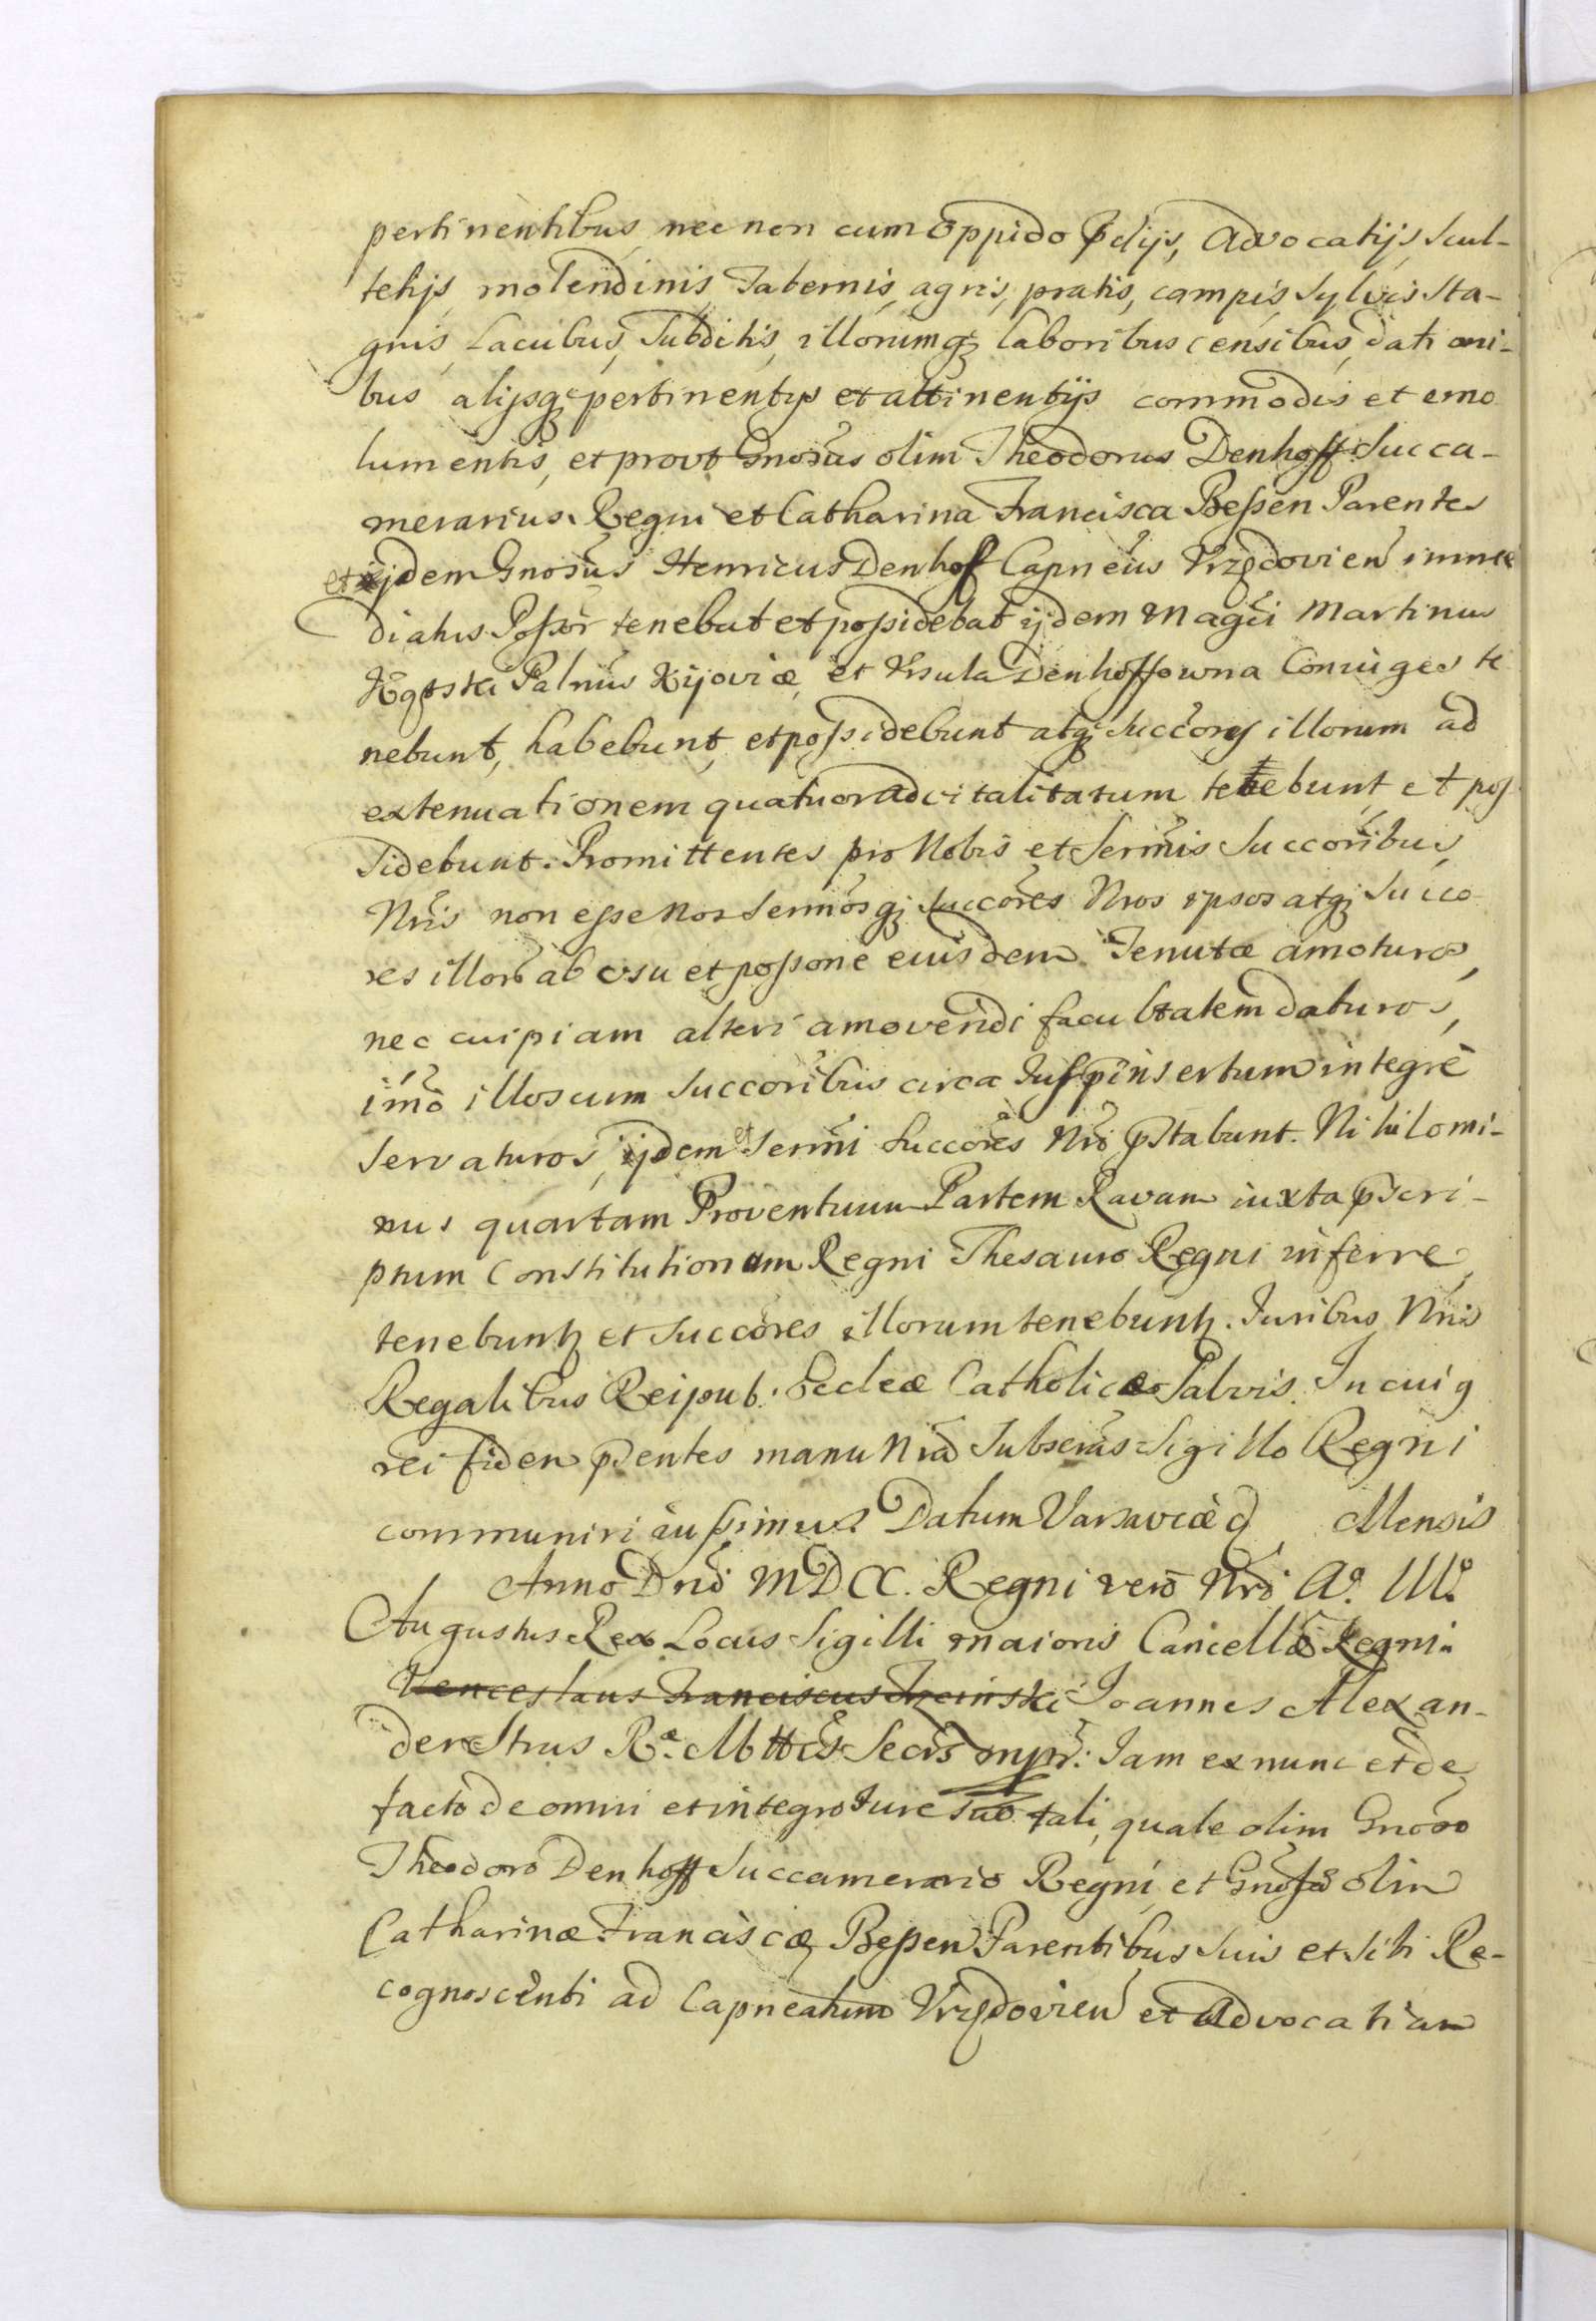 pertinentibus, nec non cum oppido p̄dijs, Advocatijs, Scul-
tetijs, molendinis, Tabernis, agris, pratis, campis, Sylvis Sta-
gnis, Lacubus, Subditis, illorumq; laboribus censibus, dationi-
bus alijsq; pertinentijs et attinentijs commodis et emo
lumentis, et prout Gnosūs olim Theodorus Denhoff Succa-
merarius Regni et Catharina Francisca Beßen Parentes
et ijdem Gnosūs Henricus Denhoff Capneūs Vrzędovien̄ imme
diatus Poßor tenebat et poßidebat ijdem Magc̄i Martinus
Kątski Palnūs Kijoviæ, et Vrsula Denhoffowna Coniuges te
nebunt, habebunt, et poßidebunt atq; Succores illorum ad
extenuationem quatuor advitalitatum tenebunt, et pos
sidebunt. Promittentes pro Nobis et Serm̄is Succoribus,
Nr̄is non eße nos Serm̄osq; Succores Nros ipsos atq; Succo
res illor̄ ab usu et poßone eiusdem Tenutæ amoturos,
nec cuipiam alteri amovendi facultatem daturos,
imo illos cum Succoribus circa Jus p̄insertum integrè
servaturos, ijdem et Serm̄i Succores Nr̄i p̄stabunt. Nihilomi-
nus quartam Proventuum Partem Ravam iuxta p̄scri-
ptum Constitutionum Regni Thesauro Regni inferre,
tenebunt et Succores illorum tenebunt. Juribus Nr̄is
Regalibus Reipub. Eccleæ Catholicæ Salvis. In cuig
rei fidem p̄sentes manu Nrā Subscrās Sigillo Regni
communiri iußimus. Datum Varsaviæ d Mensis
Anno Dn̄i MDCX. Regni vero Nri Aº. IIIº.
Augustus Rex Locus Sigilli maioris Cancellæ Regni.
Venceslaus Franciscus Trzcinski Joannes Alexan-
der Strus Ræ Mttis Secrs mpr: Jam ex nunc et de
facto de omni et integro Jure suo tali, quale olim Gnoso
Theodoro Denhoff Succamerario Regni, et Gnosæ olim
Catharinæ Franciscæ Beßen Parentibus Suis et Sibi Re-
cognoscenti ad Capneatum Vrzędovien̄ et Advocatiam